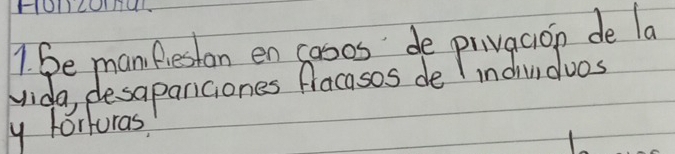 Horizontal.
1. Se manifiestan en casos de privación de la
vida, desapariciones fracasos de individuos
y torturas.